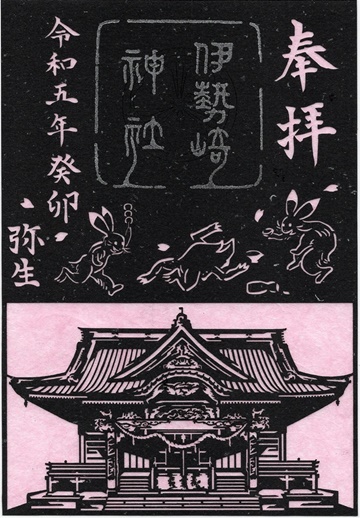 奉拝
伊勢崎
神社
令和五年癸卯
弥生